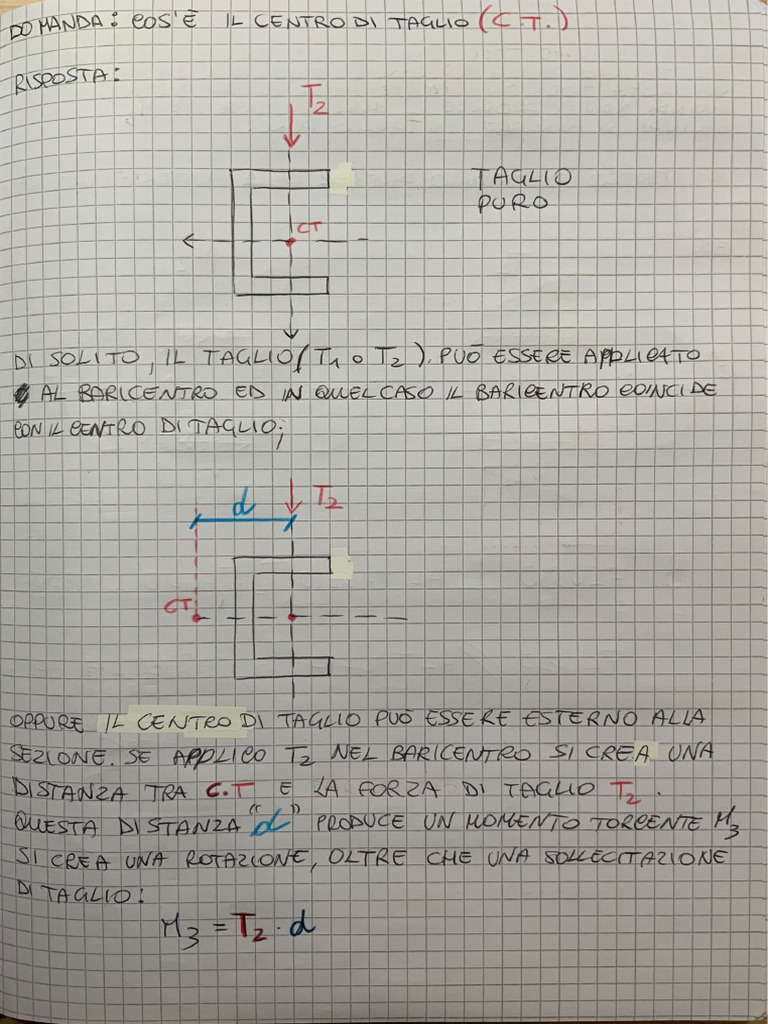 DOMANDA: COS'È IL CENTRO DI TAGLIO (C.T.)
RISPOSTA:
T2
TAGLIO
PURO
CT
DI SOLITO, IL TAGLIO (T1 O T2). PUÒ ESSERE APPLICATO
AL BARICENTRO ED IN QUEL CASO IL BARICENTRO COINCIDE
CON IL CENTRO DI TAGLIO;
d T2
CT
OPPURE IL CENTRO DI TAGLIO PUÒ ESSERE ESTERNO ALLA
SEZIONE. SE APPLICO T2 NEL BARICENTRO SI CREA UNA
DISTANZA TRA C.T E LA FORZA DI TAGLIO T2.
QUESTA DISTANZA "d" PRODUCE UN MOMENTO TORCENTE M3
SI CREA UNA ROTAZIONE, OLTRE CHE UNA SOLLECITAZIONE
DI TAGLIO:
M3 = T2 · d